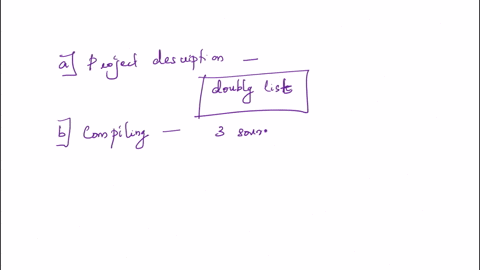 a] Project description —
doubly lists
b] Compiling — 3 sour